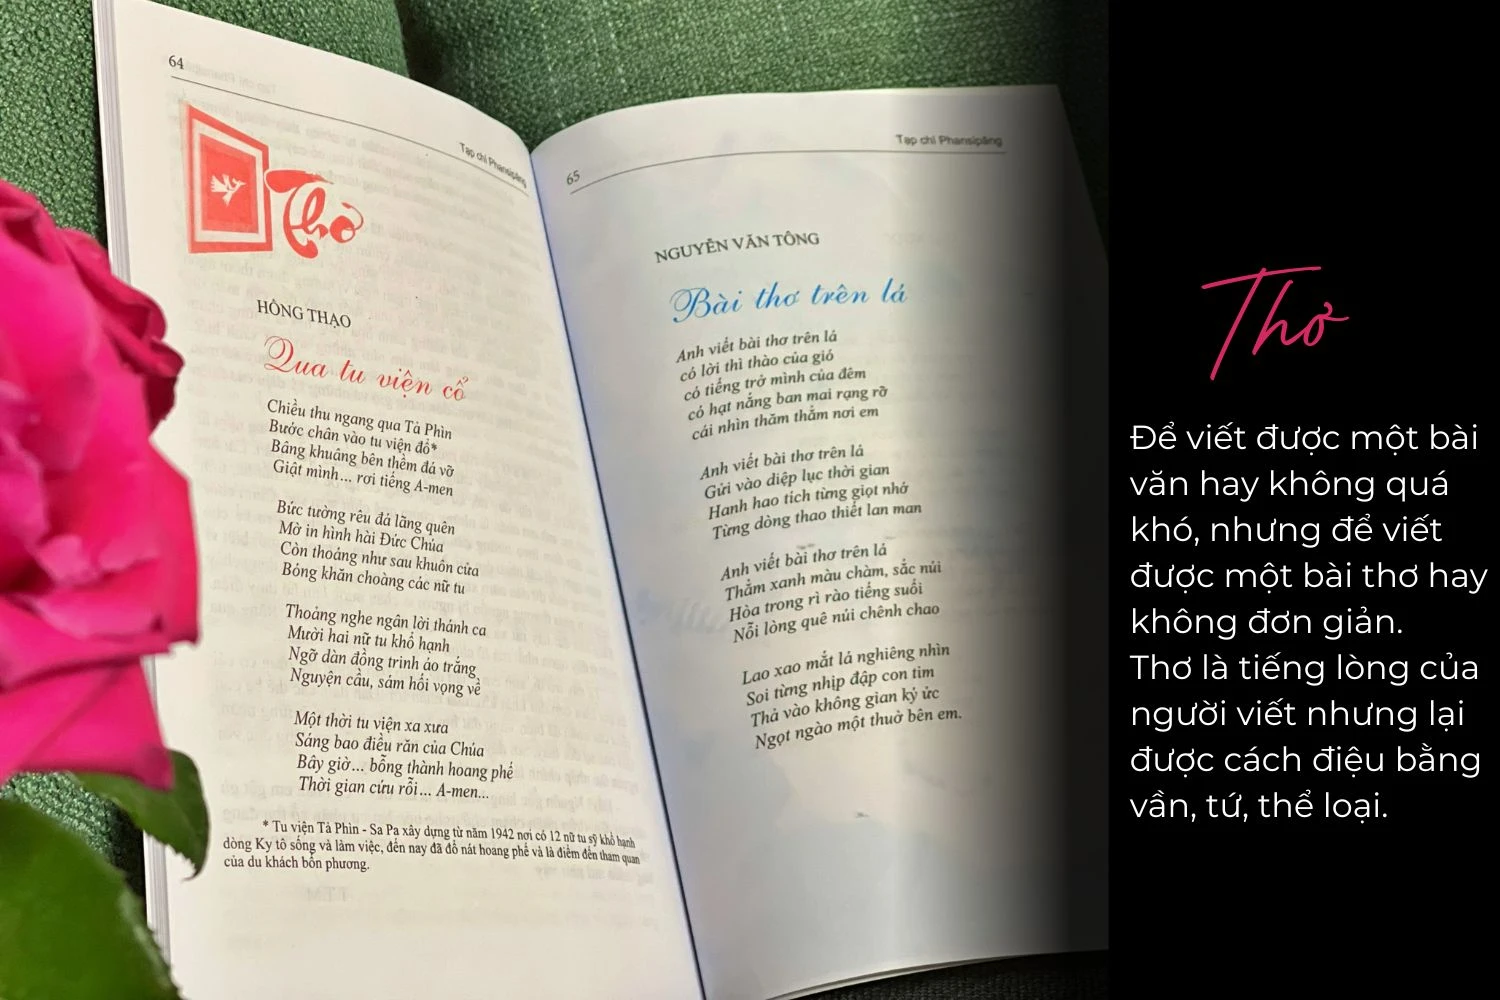 64
Tạp chí Phansipăng
Thơ
HỒNG THẠO
Qua tu viện cổ
Chiều thu ngang qua Tả Phìn
Bước chân vào tu viện đổ*
Bâng khuâng bên thềm đá vỡ
Giật mình... rơi tiếng A-men
Bức tường rêu đá lãng quên
Mờ in hình hài Đức Chúa
Còn thoảng như sau khuôn cửa
Bóng khăn choàng các nữ tu
Thoảng nghe ngân lời thánh ca
Mười hai nữ tu khổ hạnh
Ngỡ dàn đồng trinh áo trắng
Nguyện cầu, sám hối vọng về
Một thời tu viện xa xưa
Sáng bao điều răn của Chúa
Bây giờ... bỗng thành hoang phế
Thời gian cứu rỗi... A-men...
* Tu viện Tả Phìn - Sa Pa xây dựng từ năm 1942 nơi có 12 nữ tu sỹ khổ hạnh
dòng Ky tô sống và làm việc, đến nay đã đổ nát hoang phế và là điểm đến tham quan
của du khách bốn phương.
65
Tạp chí Phansipăng
NGUYỄN VĂN TÔNG
Bài thơ trên lá
Anh viết bài thơ trên lá
có lời thì thào của gió
có tiếng trở mình của đêm
có hạt nắng ban mai rạng rỡ
cái nhìn thăm thẳm nơi em
Anh viết bài thơ trên lá
Gửi vào diệp lục thời gian
Hanh hao tích từng giọt nhớ
Từng dòng thao thiết lan man
Anh viết bài thơ trên lá
Thẳm xanh màu chàm, sắc núi
Hòa trong rì rào tiếng suối
Nỗi lòng quê núi chênh chao
Lao xao mắt lá nghiêng nhìn
Soi từng nhịp đập con tim
Thả vào không gian ký ức
Ngọt ngào một thuở bên em.
Thơ
Để viết được một bài
văn hay không quá
khó, nhưng để viết
được một bài thơ hay
không đơn giản.
Thơ là tiếng lòng của
người viết nhưng lại
được cách điệu bằng
vần, tứ, thể loại.